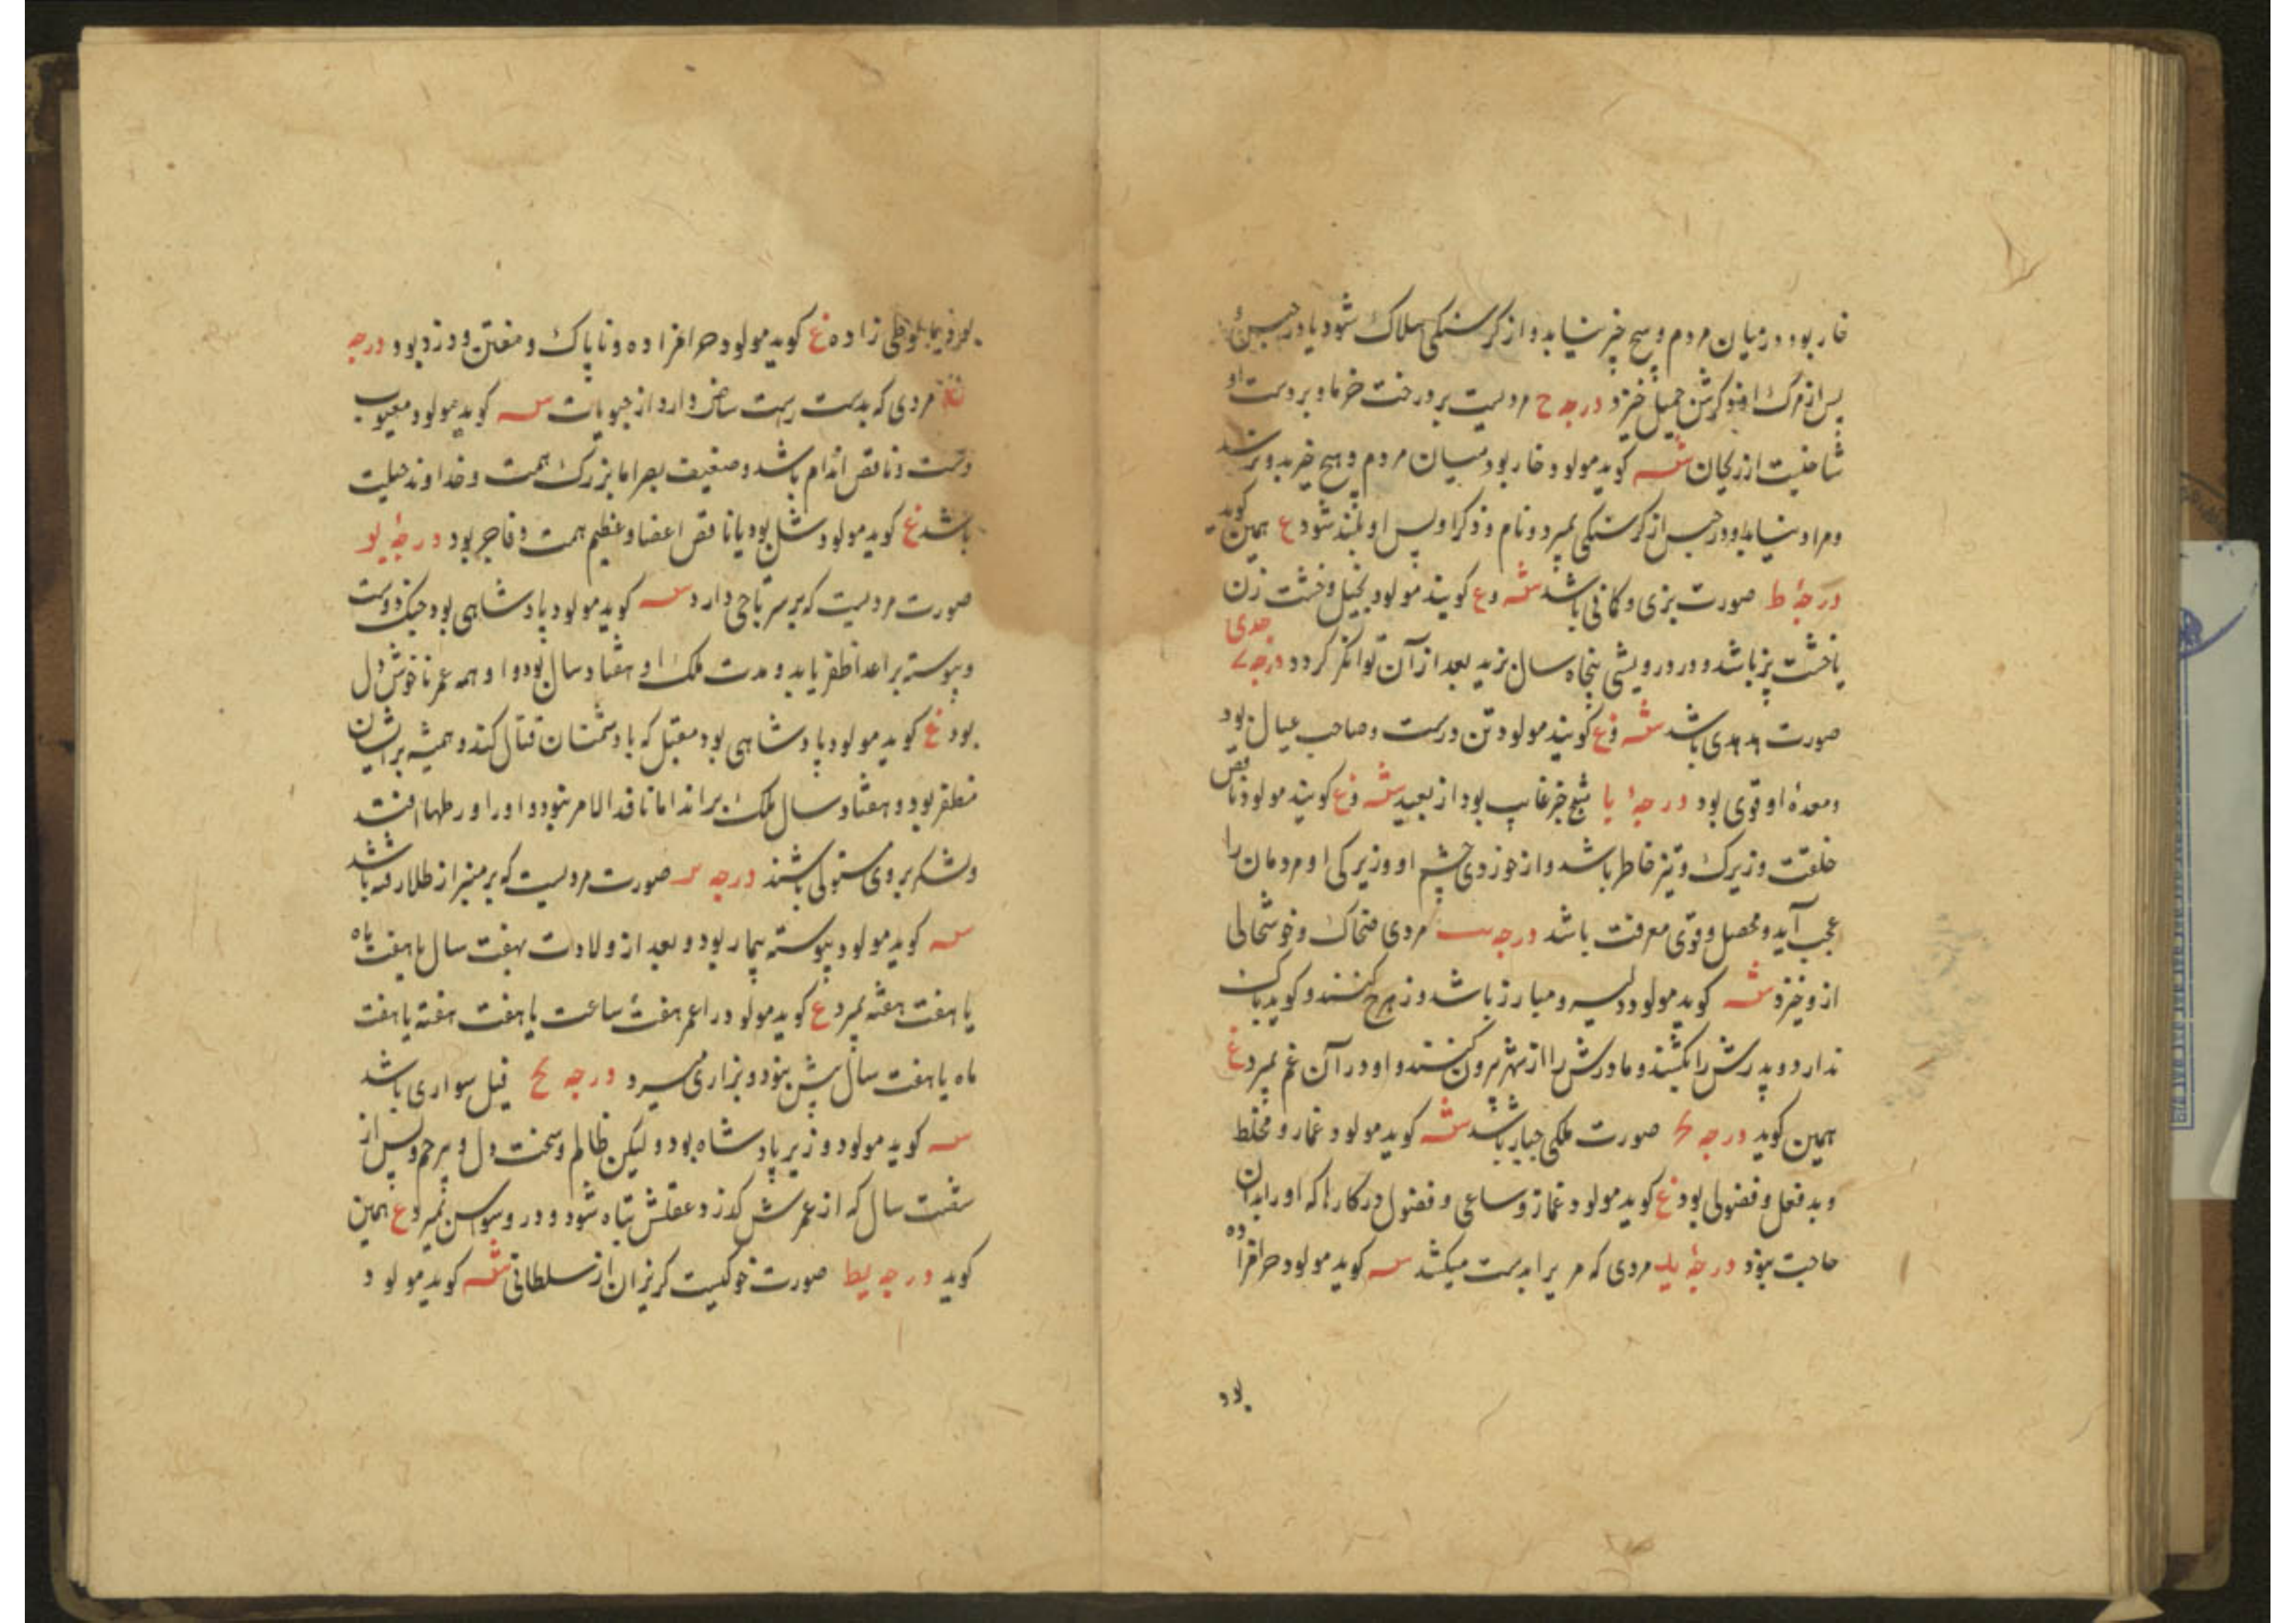 خار بود در میان مردم و هیچ خیر نیابد و از گرسنگی هلاک شود یا در حبس و
پس از مرگ او ذکرش جمیل خیزد درجه ح مردیست بر درخت خرما و بر دست او
شاخیست از ریحان سه کوید مولود خار بود میان مردم و هیچ خیر بدو نرسد
و مراد نیابد و در حبس از کرسنکی بمیرد و نام و ذکر او پس او بلند شود ع همین کوید
درجهٔ ط صورت بزی و کانی باشد سه و ع کویند مولود بخیل و خشت زن
یا خشت پز باشد و در درویشی پنجاه سال بزید بعد از آن توانکر کردد درجه ی جدی
صورت هدهدی باشد سه و ع کویند مولود تن درست و صاحب عیال بود
و معدهٔ او قوی بود درجهٔ یا شبح خر غایب بود از بعید سه و ع کویند مولود ناقص
خلقت و زیرک و تیز خاطر باشد و از خوردی چشم او و زیرکی او مردمان را
عجب آید و محصل و قوی معرفت باشد درجه یب مردی ضحاک و خوشحالی
از و خیزد سه کوید مولود دلیر و مبارز باشد و زهرج کنند و کوید باک
ندارد و پدرش را بکشند و مادرش را از شهر بیرون کنند و او در آن غم بمیرد ع
همین کوید درجه یج صورت ملکی جبار باشد سه کوید مولود غماز و مخلط
و بد فعل و فضولی بود ع کوید مولود غماز و ساعی و فضول در کارها که او را بدان
حاجت نبود درجهٔ ید مردی که بدست میکشد سه کوید مولود حرامزاده
بود
بود زاده ع کوید مولود حرامزاده و ناپاک و مفتن و دزد بود درجه
یه مردی که بدست راست دارد از حبوبات سه کوید مولود معیوب
دست و ناقص اندام باشد و ضعیف بصر اما بزرک همت و خداوند حیلت
باشد ع کوید مولود شل بود یا ناقص اعضا و عظیم همت و فاجر بود درجهٔ یو
صورت مردیست که بر سر تاجی دارد سه کوید مولود پادشاهی بود جنک دوست
و پیوسته بر اعدا ظفر یابد و مدت ملک او هفتاد سال بود و او همه عمر ناخوش دل
بود ع کوید مولود پادشاهی بود مقبل که با دشمنان قتال کند و همیشه بر ایشان
مظفر بود و هفتاد سال ملک براند اما نافذ الامر نبود و او را ورطها افتد
و لشکر بر وی مستولی باشند درجه یز صورت مردیست که بر منبر از طلا رفته باشد
سه کوید مولود پیوسته بیمار بود و بعد از ولادت بهفت سال یا هفت ماه
یا هفت هفته بمیرد ع کوید مولود را عمر هفت ساعت یا هفت هفته یا هفت
ماه یا هفت سال بیش نبود و بزاری میرد درجه یح فیل سواری باشد
سه کوید مولود وزیر پادشاه بود و لیکن ظالم و سخت دل و بیرحم و پس از
شصت سال که از عمرش کذرد عقلش تباه شود و در وسواس بمیرد ع همین
کوید درجه یط صورت خوکیست کریزان از سلطانی سه کوید مولود